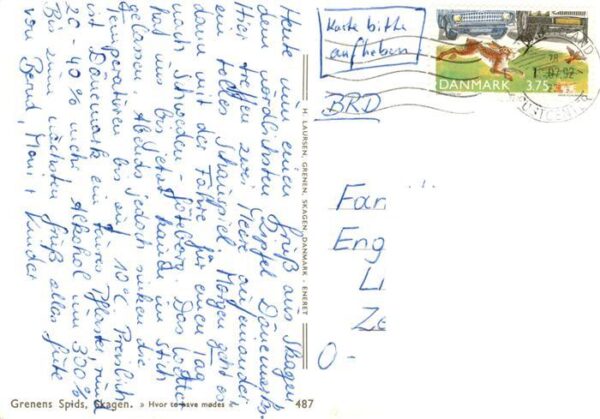 Heute nun einen Gruß aus Skagen,
dem nördlichsten Zipfel Dänemarks.
Hier treffen zwei Meere aufeinander
ein tolles Schauspiel. Morgen geht es
dann mit der Fähre für einen Tag
nach Schweden - Göteborg. Das Wetter
hat uns bis jetzt kaum im Stich
gelassen. Abends jedoch sinken die
Temperaturen bis auf 10°C. Preislich
ist Dänemark ein teures Pflaster rund
20 - 40 % mehr Alkohol um 300%
Bis zum nächsten Gruß alles Gute
von Bernd, Moni + Kinder
H. LAURSEN, GRENEN, SKAGEN, DANMARK - ENERET
Karte bitte
aufheben
BRD
DANMARK 3.75
POSTCENTER
Fam
Eng
Li
Ze
O-
Grenens Spids, Skagen. » Hvor to have mødes « 487